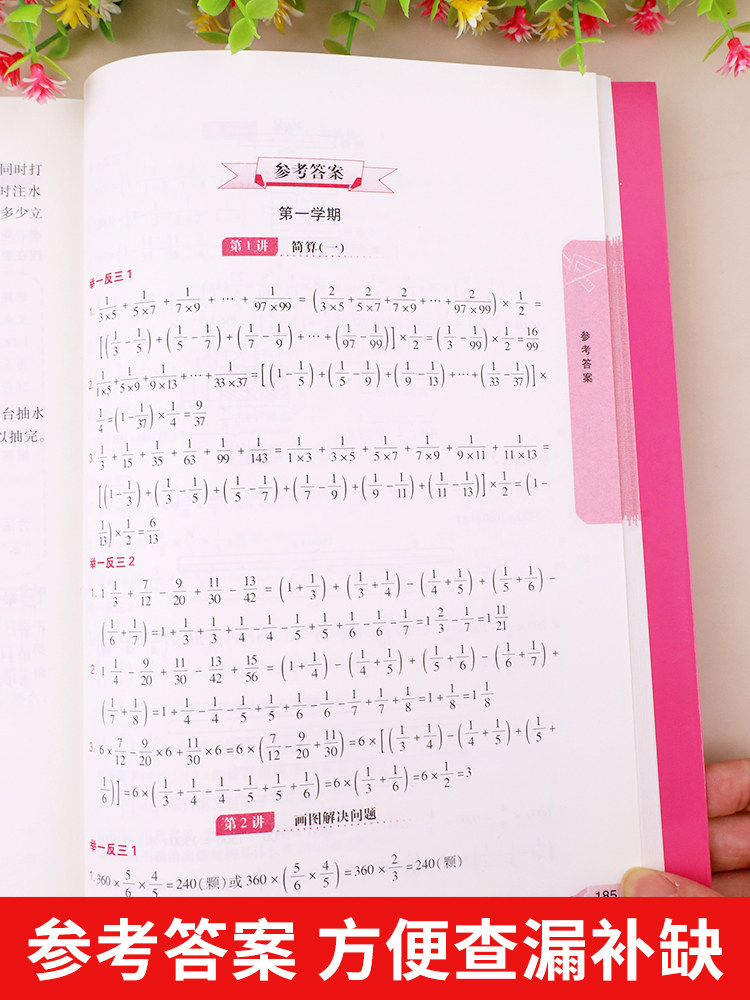 同时打
时注水
多少立
台抽水
以抽完。
参考答案
第一学期
第1讲 简算(一)
举一反三1
1. 1/3×5 + 1/5×7 + 1/7×9 + ⋯ + 1/97×99 = (2/3×5 + 2/5×7 + 2/7×9 + ⋯ + 2/97×99) × 1/2 =
[(1/3 − 1/5) + (1/5 − 1/7) + (1/7 − 1/9) + ⋯ + (1/97 − 1/99)] × 1/2 = (1/3 − 1/99) × 1/2 = 16/99
2. 1/1×5 + 1/5×9 + 1/9×13 + ⋯ + 1/33×37 = [(1 − 1/5) + (1/5 − 1/9) + (1/9 − 1/13) + ⋯ + (1/33 − 1/37)] ×
1/4 = (1 − 1/37) × 1/4 = 9/37
3. 1/3 + 1/15 + 1/35 + 1/63 + 1/99 + 1/143 = 1/1×3 + 1/3×5 + 1/5×7 + 1/7×9 + 1/9×11 + 1/11×13 =
[(1 − 1/3) + (1/3 − 1/5) + (1/5 − 1/7) + (1/7 − 1/9) + (1/9 − 1/11) + (1/11 − 1/13)] × 1/2 = (1 −
1/13) × 1/2 = 6/13
举一反三2
1. 1 1/3 + 7/12 − 9/20 + 11/30 − 13/42 = (1 + 1/3) + (1/3 + 1/4) − (1/4 + 1/5) + (1/5 + 1/6) −
(1/6 + 1/7) = 1 + 1/3 + 1/3 + 1/4 − 1/4 − 1/5 + 1/5 + 1/6 − 1/6 − 1/7 = 1 2/3 − 1/7 = 1 11/21
2. 1 1/4 − 9/20 + 11/30 − 13/42 + 15/56 = (1 + 1/4) − (1/4 + 1/5) + (1/5 + 1/6) − (1/6 + 1/7) +
(1/7 + 1/8) = 1 + 1/4 − 1/4 − 1/5 + 1/5 + 1/6 − 1/6 − 1/7 + 1/7 + 1/8 = 1 + 1/8 = 1 1/8
3. 6 × 7/12 − 9/20 × 6 + 11/30 × 6 = 6 × (7/12 − 9/20 + 11/30) = 6 × [(1/3 + 1/4) − (1/4 + 1/5) + (1/5 +
1/6)] = 6 × (1/3 + 1/4 − 1/4 − 1/5 + 1/5 + 1/6) = 6 × (1/3 + 1/6) = 6 × 1/2 = 3
第2讲 画图解决问题
举一反三1
1. 360 × 5/6 × 4/5 = 240(颗)或 360 × (5/6 × 4/5) = 360 × 2/3 = 240(颗)
参考答案
185
参考答案 方便查漏补缺